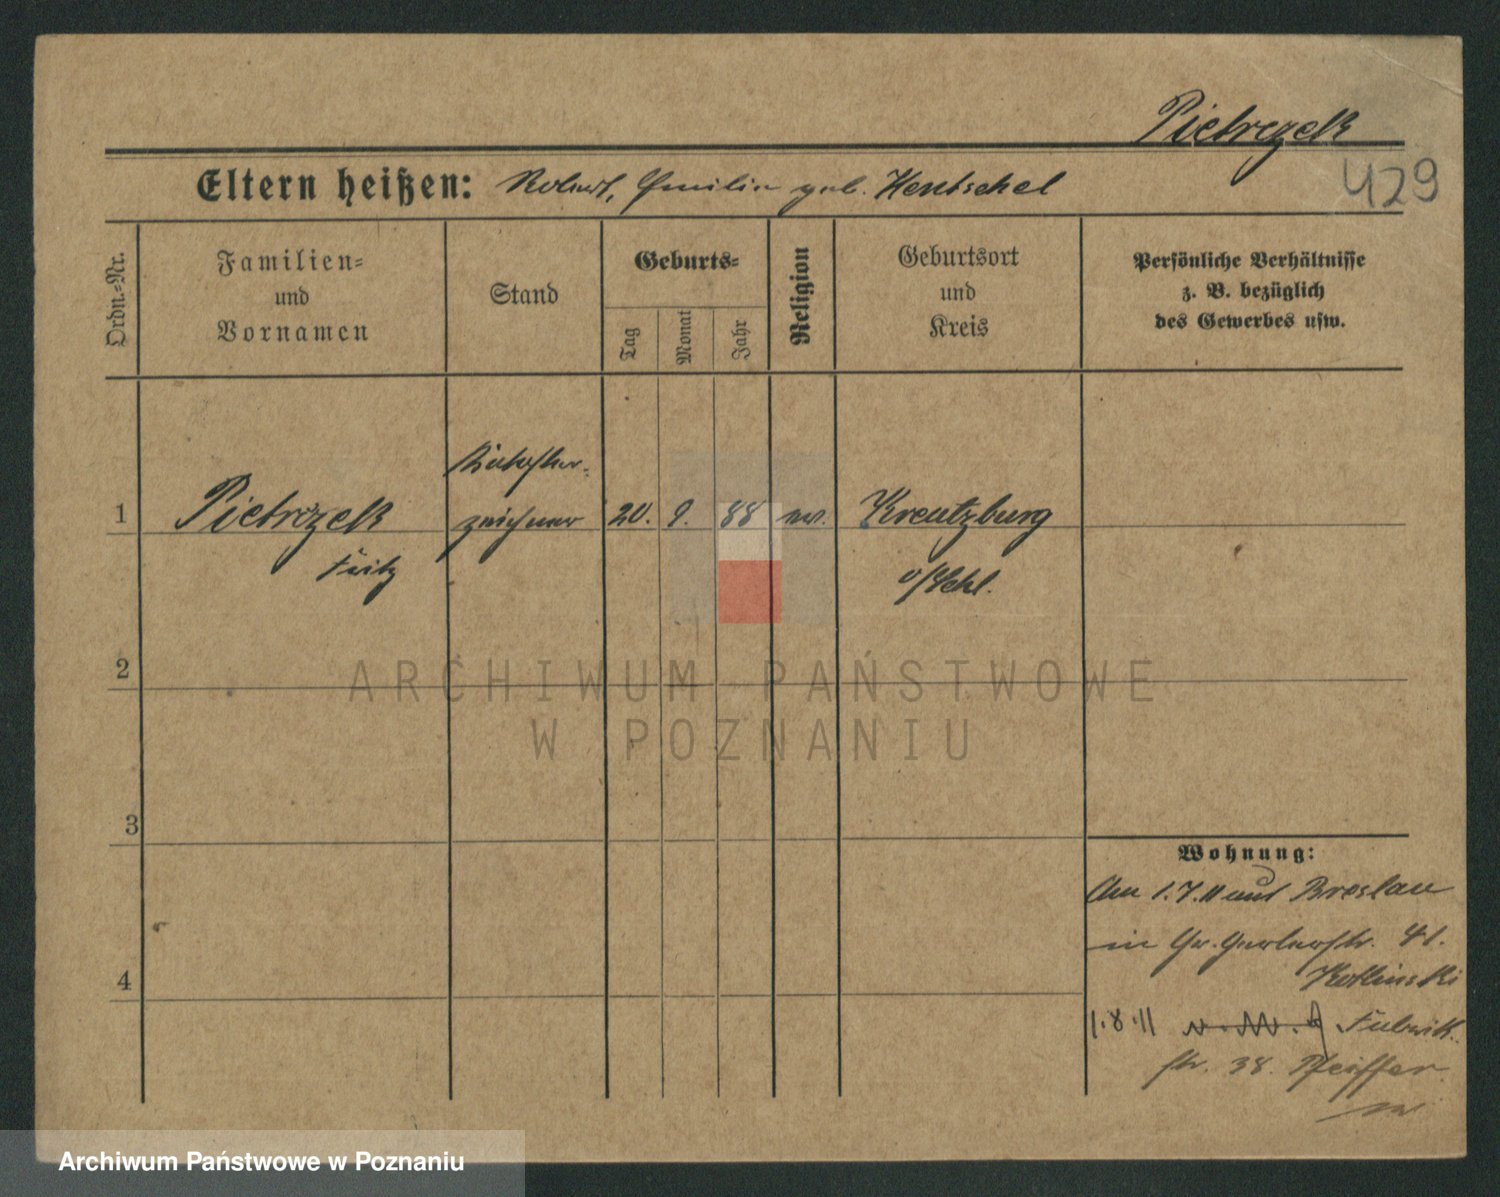 Pietrzek
429
Eltern heißen: Robert, Emilie geb. Hentschel
Ordn.-Nr.
Familien-
und
Vornamen
Stand
Geburts-
Tag
Monat
Jahr
Religion
Geburtsort
und
Kreis
Persönliche Verhältnisse
z. B. bezüglich
des Gewerbes usw.
Kataster-
1 Pietrzek zeichner 20. 9. 88 ev. Kreutzburg
Fritz
o/Schl.
2
3
4
Wohnung:
Am 1.7.11 aus Breslau
in Gr. Gerberstr. 41.
Kotlinski
1.8.11 Fabrik
str. 38. Pfeiffer
ARCHIWUM PAŃSTWOWE
W POZNANIU
Archiwum Państwowe w Poznaniu